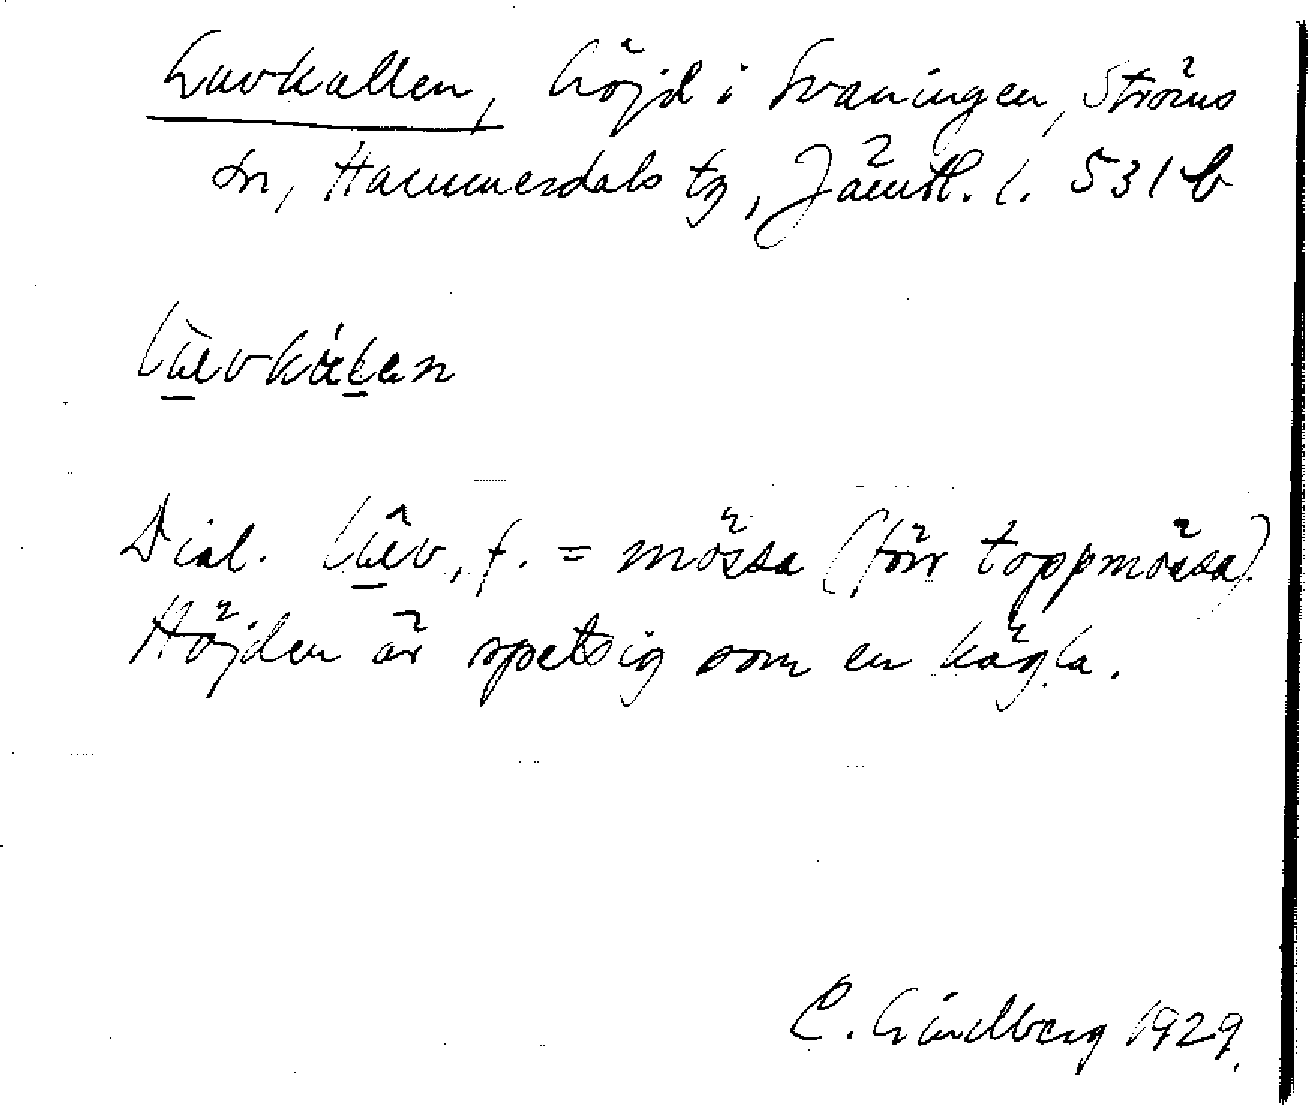 Luvkallen, höjd i Svaningen, Ströms
sn, Hammerdals tg, Jämtl. l. 531 b
Dial. = mössa (förr toppmössa).
Höjden är spetsig som en kägla.
C. Lindberg 1929.